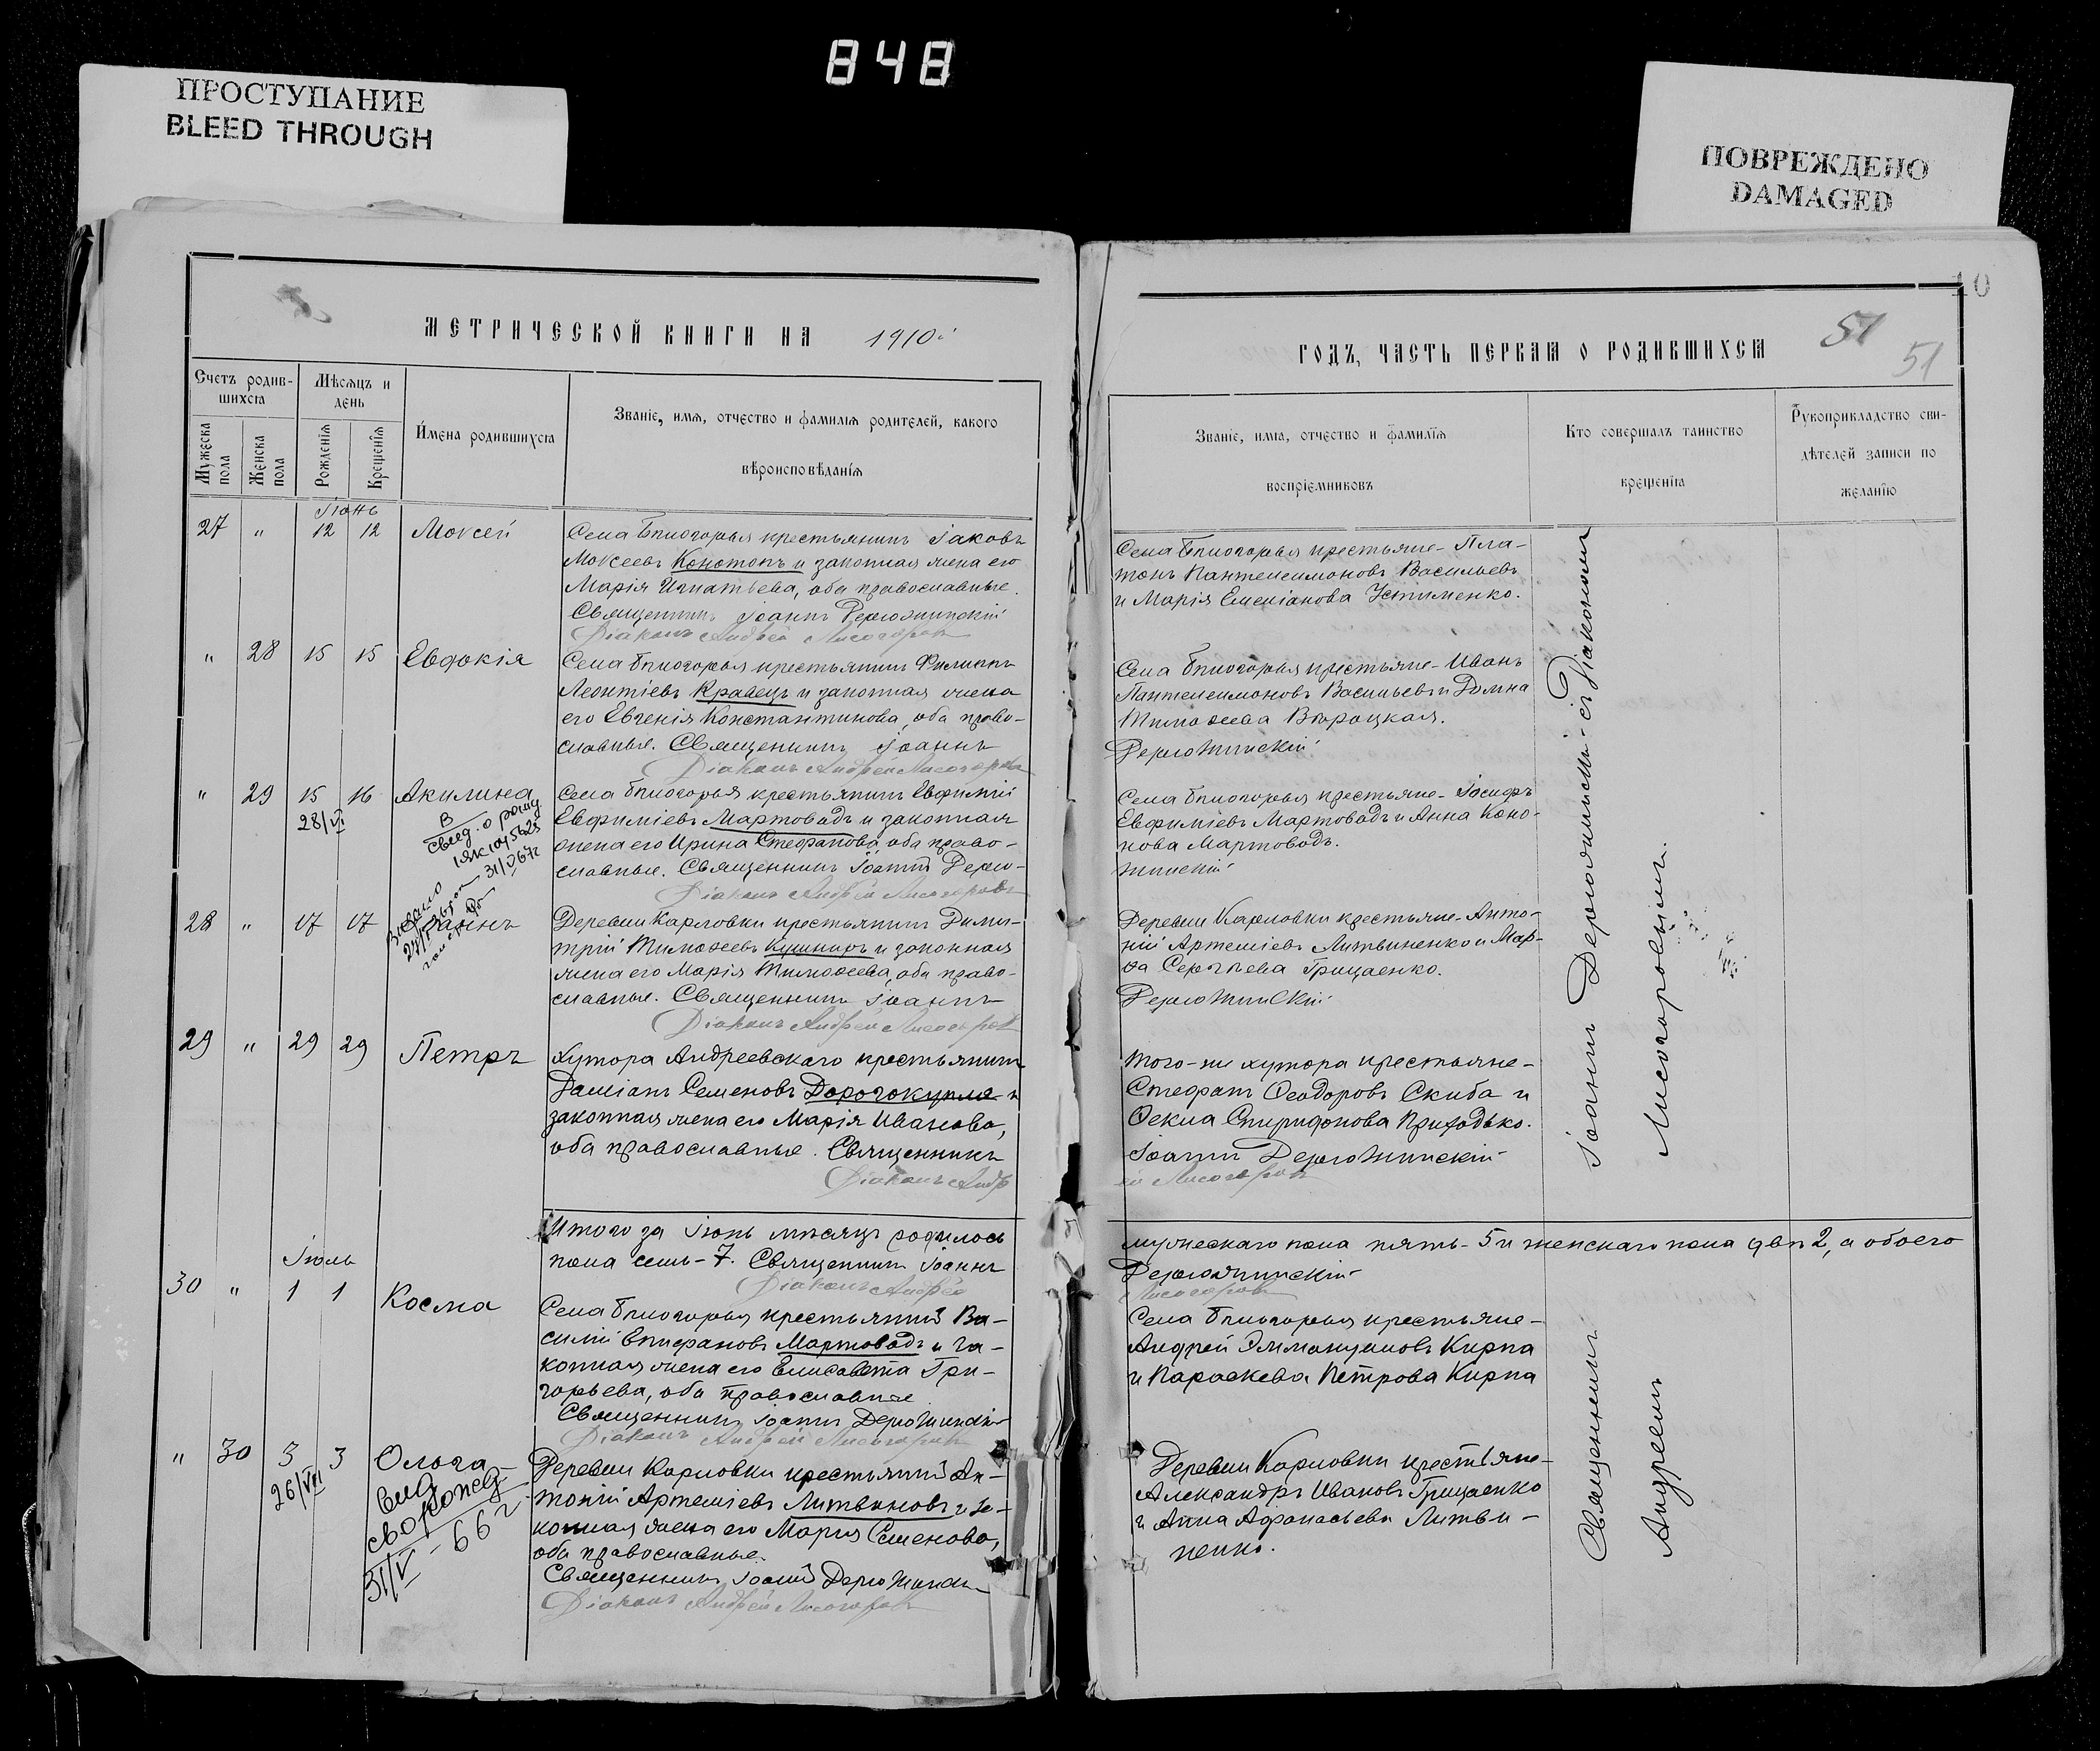 848
ПРОСТУПАНИЕ
BLEED THROUGH
ПОВРЕЖДЕНО
DAMAGED
10
МЕТРИЧЕСКОЙ КНИГИ НА 1910
ГОДЪ, ЧАСТЬ ПЕРВАЯ О РОДИВШИХСЯ
51
51
Счетъ родив-
шихся
Мѣсяцъ и
день
Мужеска
пола
Женска
пола
Рожденія
Крещенія
Имена родившихся
Званіе, имя, отчество и фамилія родителей, какого
вѣроисповѣданія
Званіе, имя, отчество и фамилія
воспріемниковъ
Кто совершалъ таинство
крещенія
Рукоприкладство сви-
дѣтелей записи по
желанію
Іюнь
27 " 12 12 Моѵсей
Села Бѣлогорья крестьянинъ Іаковъ
Моѵсеевъ Конотопъ и законная жена его
Марія Игнатьева, оба православные.
Священникъ Іоаннъ Держинскій
Діаконъ Андрей Лисогоровъ
Села Бѣлогорья крестьяне - Пла-
тонъ Пантелеимоновъ Васильевъ
и Марія Емеліанова Устименко.
" 28 15 15 Евдокія
Села Бѣлогорья крестьянинъ Филиппъ
Леонтіевъ Кравецъ и законная жена
его Евгенія Константинова, оба право-
славные. Священникъ Іоаннъ
Діаконъ Андрей Лисогоровъ
Села Бѣлогорья крестьяне - Иванъ
Пантелеимоновъ Васильевъ и Домна
Тимоѳеева
" 29 15 16 Акилина
28/VI
31/V 67г
Села Бѣлогорья крестьянинъ Евфимій
Евфиміевъ Мартовадъ и законная
жена его Ирина Стефанова, оба право-
славные. Священникъ Іоаннъ
Діаконъ Андрей Лисогоровъ
Села Бѣлогорья крестьяне - Іосифъ
Евфиміевъ Мартовадъ и Анна Коно-
нова Мартовадъ.
28 " 17 17 Іоаннъ
Деревни Карловки крестьянинъ Дими-
трій Тимоѳеевъ Кушниръ и законная
жена его Марія Тимоѳеева, оба право-
славные. Священникъ Іоаннъ
Діаконъ Андрей Лисогоровъ
Деревни Карловки крестьяне - Анто-
ній Артеміевъ Литвиненко и Мар-
ѳа Сергѣева Грицаенко.
29 " 29 29 Петръ
Хутора Андреевскаго крестьянинъ
Даміанъ Семеновъ Дорогокупля и
законная жена его Марія Иванова,
оба православные. Священникъ
Діаконъ Андр
Того-же хутора крестьяне -
Стефанъ Ѳеодоровъ Скиба и
Ѳекла Спиридонова Приходько.
Іоаннъ
ей Лисогоровъ
Итого за Іюнь мѣсяцъ родилось
мужескаго пола пять - 5 и женскаго пола двѣ 2, а обоего
пола семь - 7. Священникъ Іоаннъ
Діаконъ Андрей
Лисогоровъ
Іюль
30 " 1 1 Косма
Села Бѣлогорья крестьянинъ Ва-
силій Епифановъ Мартовадъ и за-
конная жена его Елисавета Гри-
горьева, оба православные
Священникъ Іоаннъ
Діаконъ Андрей Лисогоровъ
Села Бѣлогорья крестьяне -
Андрей Эммануиловъ Кирпа
и Параскева Петрова Кирпа
" 30 3 3 Ольга
26/VII
31/V - 66г
Деревни Карловки крестьянинъ Ан-
тоній Артеміевъ Литвиновъ и за-
конная жена его Марія Семенова,
оба православные.
Священникъ Іоаннъ
Діаконъ Андрей Лисогоровъ
Деревни Карловки крестьяне -
Александръ Ивановъ Грицаенко
и Анна Аѳанасьева Литви-
ненко.
Священникъ Іоаннъ
съ Діакономъ
Андреемъ Лисогоровымъ.